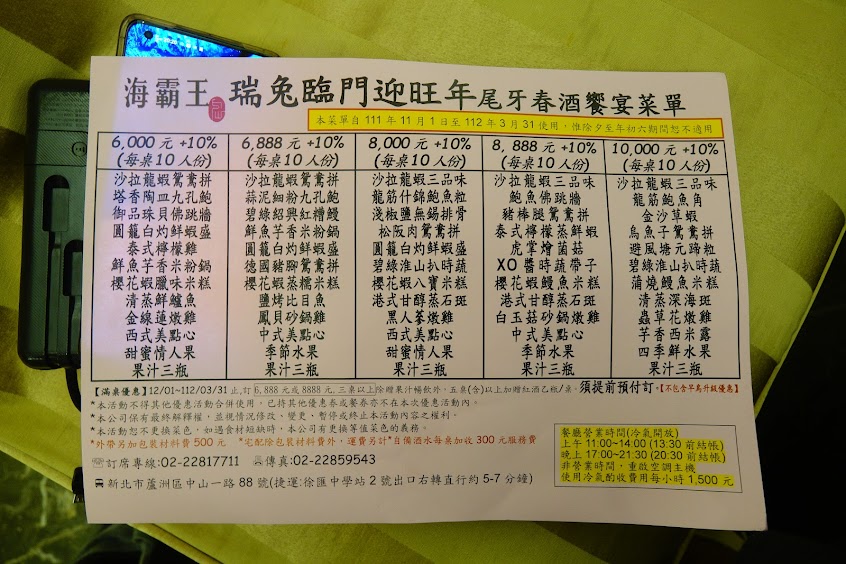 海霸王 瑞兔臨門迎旺年尾牙春酒饗宴菜單
本菜單自 111 年 11 月 1 日至 112 年 3 月 31 使用，惟除夕至年初六期間恕不適用
6,000 元 +10% 6,888 元 +10% 8,000 元 +10% 8,888 元 +10% 10,000 元 +10%
(每桌 10 人份) (每桌 10 人份) (每桌 10 人份) (每桌 10 人份) (每桌 10 人份)
沙拉龍蝦鴛鴦拼 沙拉龍蝦鴛鴦拼 沙拉龍蝦三品味 沙拉龍蝦三品味 沙拉龍蝦三品味
塔香陶皿九孔鮑 蒜泥細粉九孔鮑 龍筋什錦鮑魚粒 鮑魚佛跳牆 龍筋鮑魚角
御品珠貝佛跳牆 碧綠紹興紅糟鰻 淺椒鹽無錫排骨 豬棒腿鴛鴦拼 金沙草蝦
圓籠白灼鮮蝦盛 鮮魚芋香米粉鍋 松阪肉鴛鴦拼 泰式檸檬蒸鮮蝦 烏魚子鴛鴦拼
泰式檸檬雞 圓籠白灼鮮蝦盛 圓籠白灼鮮蝦盛 虎掌燴菌菇 避風塘元蹄粒
鮮魚芋香米粉鍋 德國豬腳鴛鴦拼 碧綠淮山扒時蔬 XO 醬時蔬帶子 碧綠淮山扒時蔬
櫻花蝦臘味米糕 櫻花蝦蒸糯米糕 櫻花蝦八寶米糕 櫻花蝦鰻魚米糕 蒲燒鰻魚米糕
清蒸鮮鱸魚 鹽烤比目魚 港式甘醇蒸石斑 港式甘醇蒸石斑 清蒸深海斑
金線蓮燉雞 鳳貝砂鍋雞 黑人筆燉雞 白玉菇砂鍋燉雞 蟲草花燉雞
西式美點心 中式美點心 西式美點心 中式美點心 芋香西米露
甜蜜情人果 季節水果 甜蜜情人果 季節水果 四季鮮水果
果汁三瓶 果汁三瓶 果汁三瓶 果汁三瓶 果汁三瓶
【滿桌優惠】12/01~112/03/31 止,訂 6,888 元或 8888 元,三桌以上除贈果汁暢飲外，五桌(含)以上加贈紅酒乙瓶/桌。須提前預付訂。【不包含早鳥升級優惠】
*本活動不得其他優惠活動合併使用，已持其他優惠券或餐券亦不在本次優惠活動內。
*本公司保有最終解釋權，並視情況修改、變更、暫停或終止本活動內容之權利。
*本活動恕不更換菜色，如遇食材短缺時，本公司有更換等值菜色的義務。
*外帶另加包裝材料費 500 元 *宅配除包裝材料費外，運費另計*自備酒水每桌加收 300 元服務費
訂席專線:02-22817711 傳真:02-22859543
新北市蘆洲區中山一路 88 號(捷運:徐匯中學站 2 號出口右轉直行約 5-7 分鐘)
餐廳營業時間(冷氣開放)
上午 11:00~14:00 (13:30 前結帳)
晚上 17:00~21:30 (20:30 前結帳)
非營業時間，重啟空調主機
使用冷氣酌收費用每小時 1,500 元